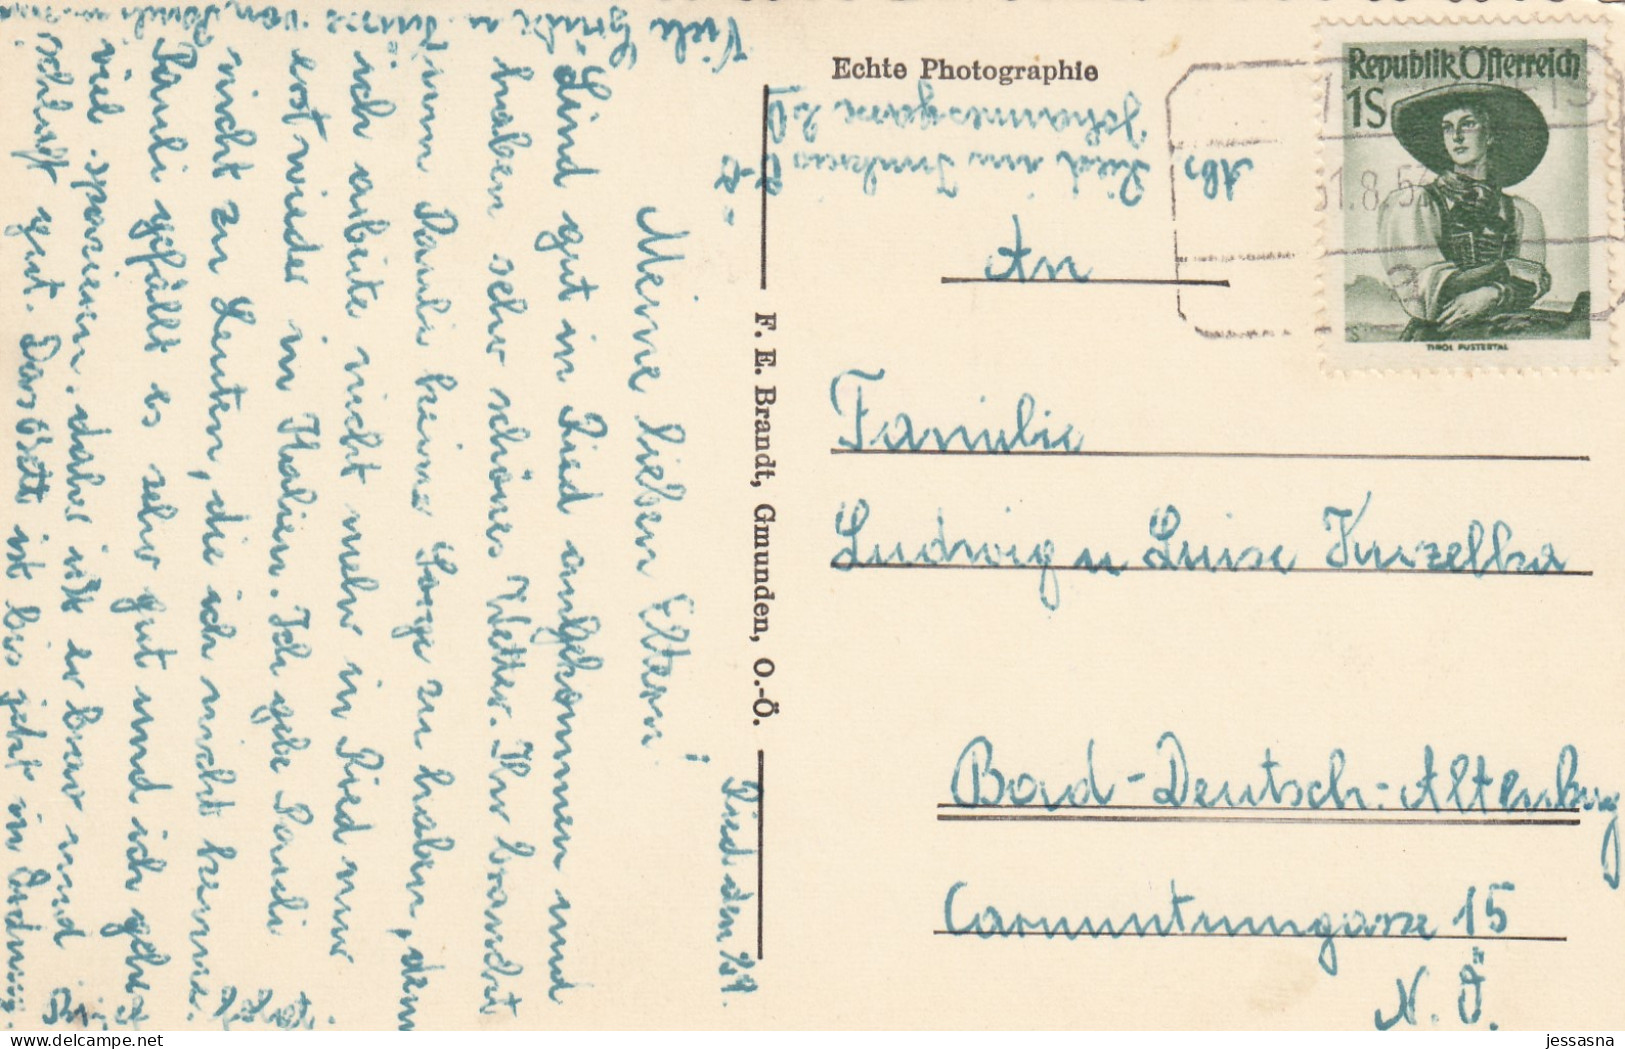 Ried, den
Meine lieben Eltern!
Sind gut in Ried angekommen und
haben sehr schönes Wetter. Ihr braucht
um Pauli keine Sorge zu haben, denn
ich arbeite nicht mehr in Ried nur
erst wieder in Italien. Ich gebe Pauli
nicht zu Leuten, die ich nicht kenne.
Pauli gefällt es sehr gut und ich gehe
viel spazieren, daher ißt er brav und
schläft gut. Das Bett ist bis jetzt in Ordnung.
Viele Grüße u. Küsse von
Echte Photographie
Abs.
Ried im Innkreis
Johannesgasse
F. E. Brandt, Gmunden, O.-Ö.
Republik Österreich
1S
TIROL PUSTERTAL
31.8.5
An
Familie
Ludwig u Luise Kuzelka
Bad-Deutsch-Altenburg
Carnuntumgasse 15
N.Ö.
jessasna